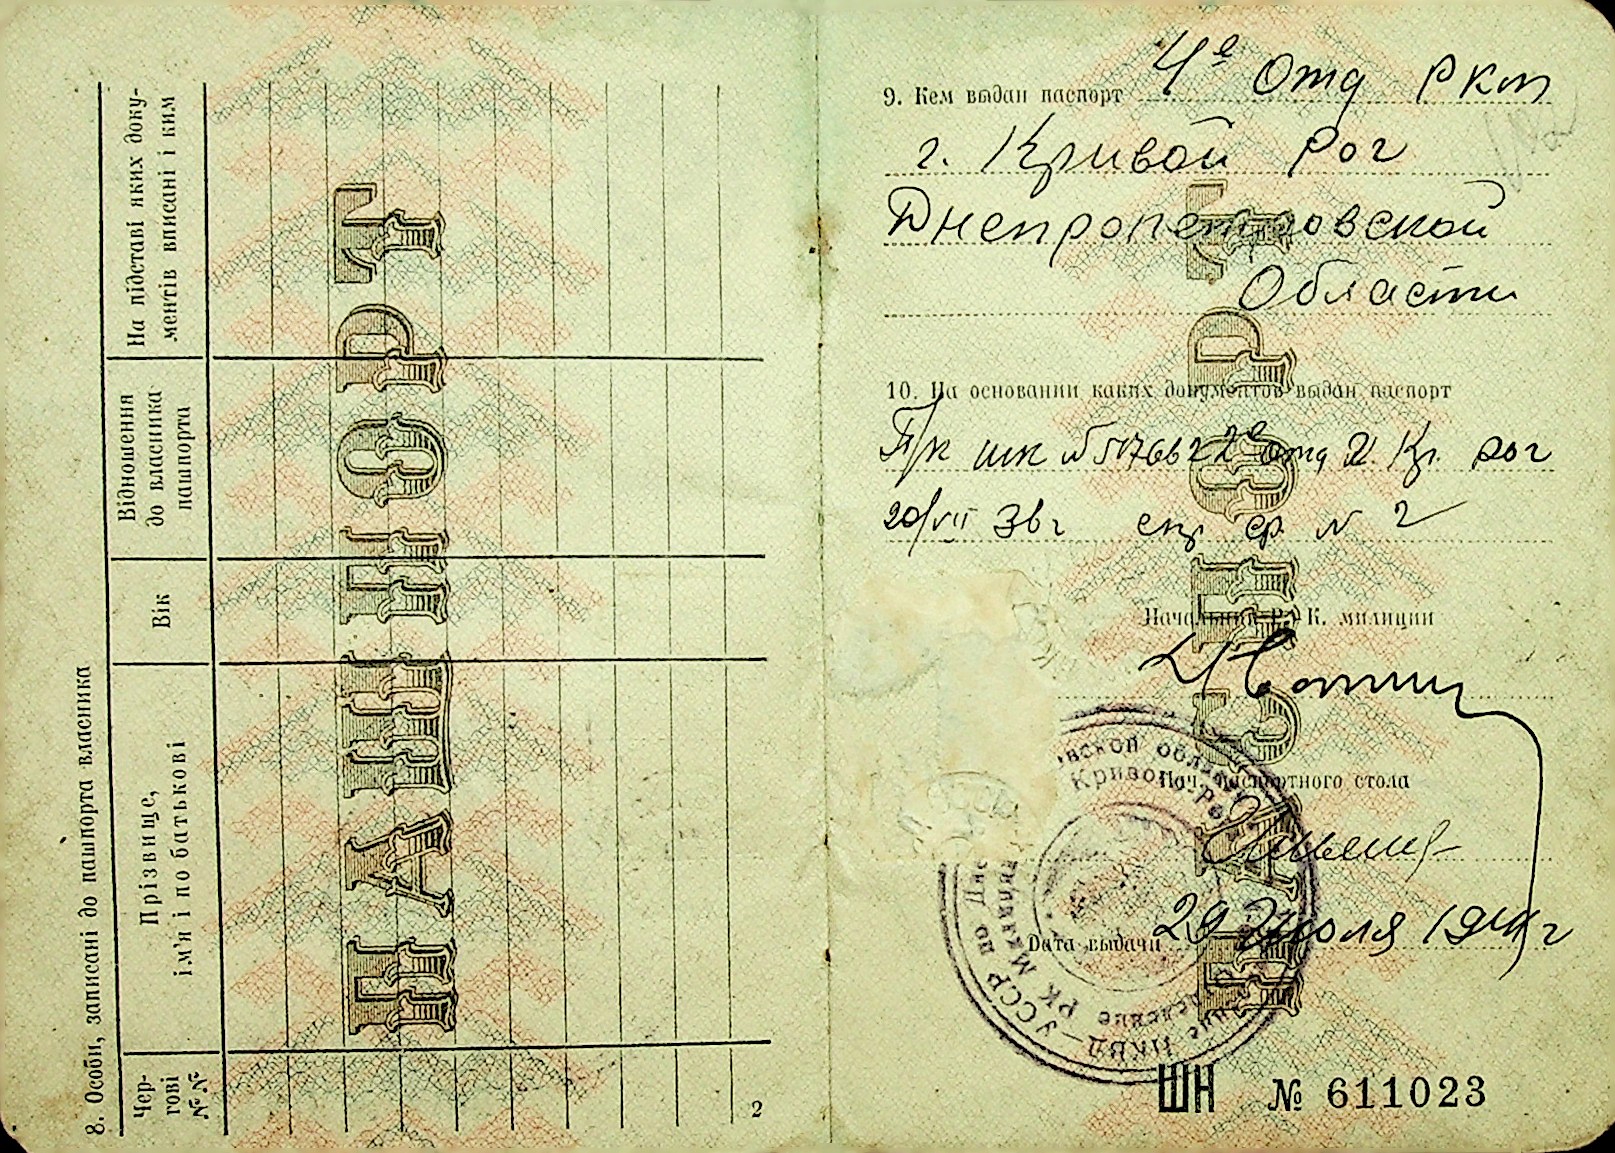 8. Особи, записані до пашпорта власника
Чер-
гові
№№
Прізвище,
ім'я і по батькові
Вік
Відношення
до власника
пашпорта
На підставі яких доку-
ментів вписані і ким
ПАШПОРТ
2
9. Кем выдан паспорт 4е Отд РКМ
г. Кривой Рог
Днепропетровской
Области
10. На основании каких документов выдан паспорт
П/к шк № 517662 2е отд г. Кр. рог
20/VII 36г спр ф. № 2
Начальник Р. К. милиции
Нач. паспортного стола
Дата выдачи 29 Июля 1941г
ПАСПОРТ
НКВД—УССР по
вской области
РК Милиции
Криво-Ро
ШН № 611023